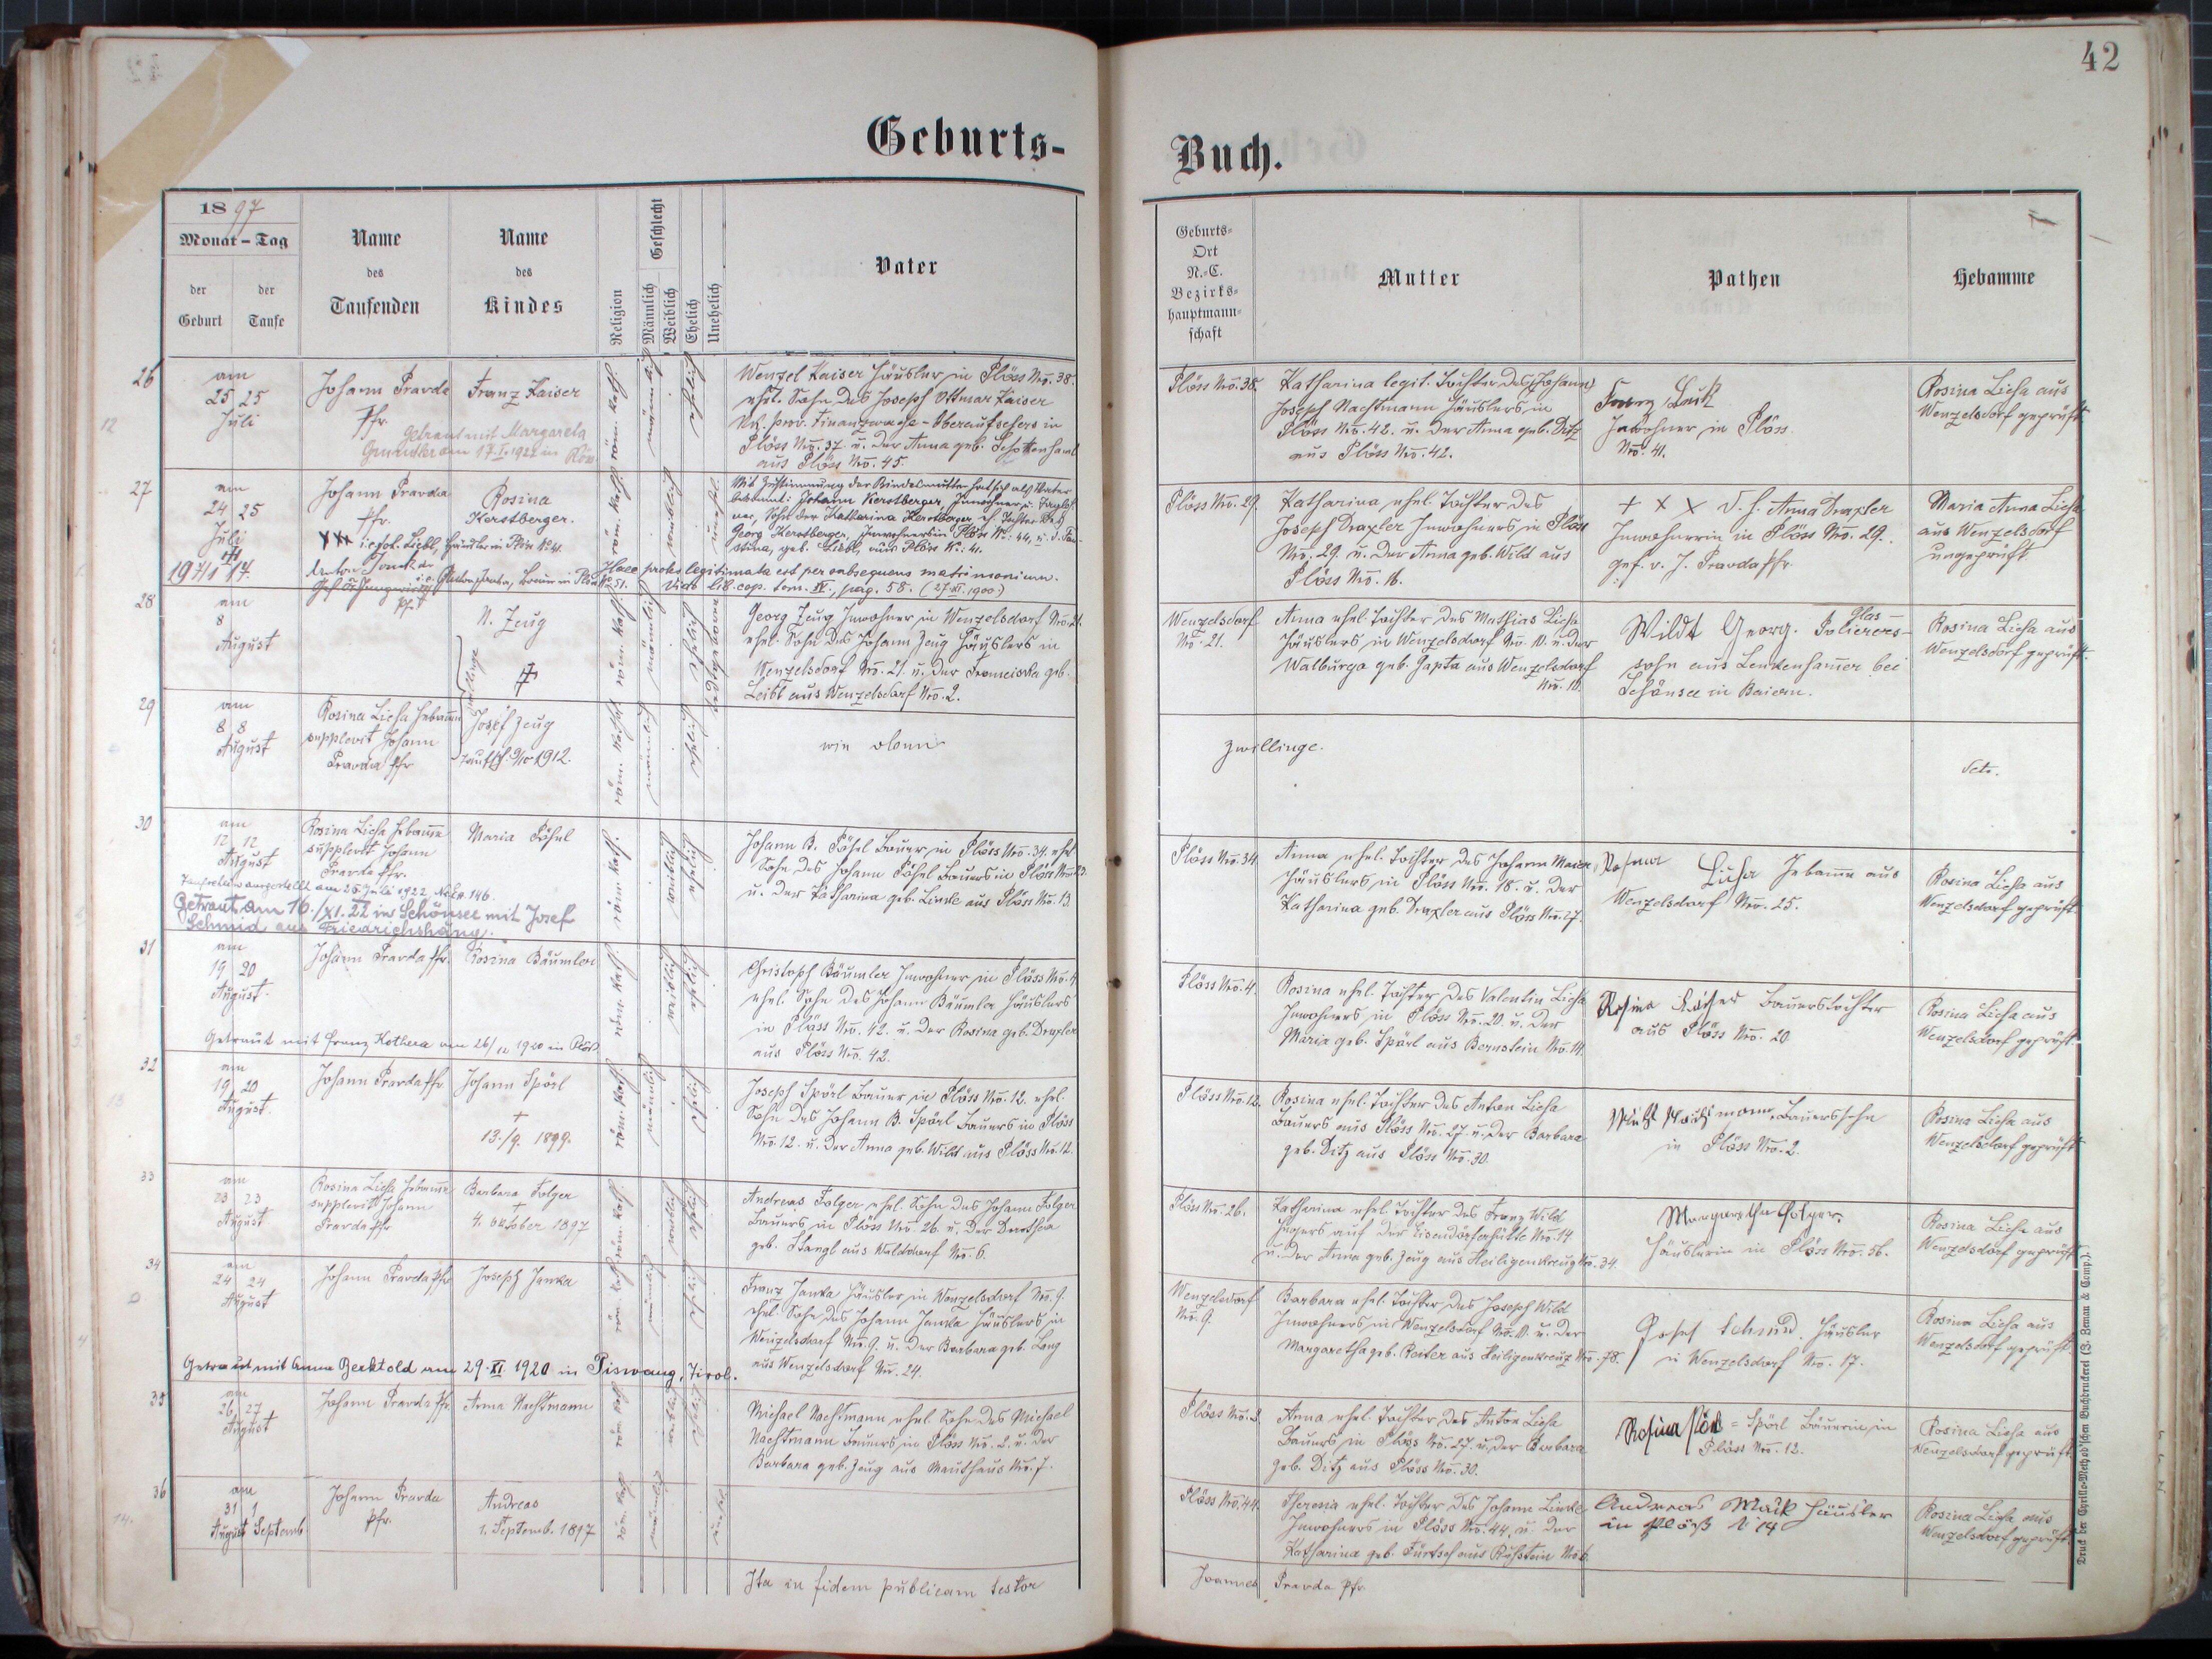 42
Geburts-
Buch.
1897
Monat - Tag
der Geburt
der Taufe
Name des Taufenden
Name des Kindes
Religion
Geschlecht
Männlich
Weiblich
Ehelich
Unehelich
Vater
Geburts-
Ort
N.-C.
Bezirks-
hauptmann-
schaft
Mutter
Pathen
Hebamme
26
am
25 25
Juli
Johann Pravda
Pfr.
Getraut mit Margareta
am 17.I.1922 in Plöss
Franz Kaiser
röm. kath.
männlich
ehelich
Wenzel Kaiser Häusler in Plöss Nro. 38.
ehel. Sohn des Joseph Ottmar Kaiser
k.k. prov. Finanzwache-Oberaufsehers in
Plöss Nro. 37. u. der Anna geb. Schottenhaml
aus Plöss Nro. 45.
Plöss Nro. 38.
Katharina legit. Tochter des (Johann)
Joseph Nachtmann Häuslers in
Plöss Nro. 42. u. der Anna geb. Ditz
aus Plöss Nro. 42.
Inwohner in Plöss
Nro. 41.
Rosina Liesa aus
Wenzelsdorf geprüft.
27
am
24 25
Juli
Johann Pravda
Pfr.
Rosina
Kerstberger.
röm. kath.
weiblich
unehel.
Mit Zustimmung der Kindesmutter hat sich als Vater
bekannt: Johann Kerstberger, Inwohner u.
Sohn der Katharina Kerstberger eh. Tochter des
Georg Kerstberger, Inwohners in Plöss N.: 44, u. d.
geb. Liebl, aus Plöss N.: 41.
Haec proles legitimata est per subsequens matrimonium.
Vide lib. cop. tom. IV., pag. 58. (27.XI.1900.)
Plöss Nro. 29.
Katharina, ehel. Tochter des
Joseph Draxler Inwohners in Plöss
Nro. 29. u. der Anna geb. Wild aus
Plöss Nro. 16.
+ × × d. h. Anna Draxler
Inwohnerin in Plöss Nro. 29.
gef. v. J. Pravda Pfr.
Maria Anna Liesa
aus Wenzelsdorf
ungeprüft.
28
am
8
August
N. Zeug
Zwillinge
röm. kath.
männlich
ehelich
todtgeboren
Georg Zeug Inwohner in Wenzelsdorf Nro. 21.
ehel. Sohn des Johann Zeug Häuslers in
Wenzelsdorf Nro. 21. u. der Franciska geb.
Leibl aus Wenzelsdorf Nro. 2.
Wenzelsdorf
Nro. 21.
Anna ehel. Tochter des Mathias Liesa
Häuslers in Wenzelsdorf Nro. 10. u. der
Walburga geb. Gapta aus Wenzelsdorf
Nro. 10.
Wildt Georg. Glas-
Polierers-
sohn aus Lenkenhamer bei
Schönsee in Baiern.
Rosina Liesa aus
Wenzelsdorf geprüft.
29
am
8 8
August
Rosina Liesa Hebamme
supplevit Johann
Pravda Pfr.
Josef Zeug
Taufsch. 9/10 1912.
röm. kathol.
männlich
ehelich
wie oben
Zwillinge.
30
am
12 12
August
Rosina Liesa Hebamme
supplevit Johann
Pravda Pfr.
Taufschein ausgestellt am 25. Juli 1922 146.
Getraut am 16./XI. 22 in Schönsee mit Josef
Schmid aus Friedrichshäng.
Maria Pöhsl
röm. kath.
weiblich
ehelich
Johann B. Pöhsl Bauer in Plöss Nro. 34. ehel.
Sohn des Johann Pöhsl Bauers in Plöss Nro. 23.
u. der Katharina geb. Linke aus Plöss Nro. 13.
Plöss Nro. 34.
Anna ehel. Tochter des Johann Maier
Häuslers in Plöss Nro. 18. u. der
Katharina geb. Draxler aus Plöss Nro. 27.
Rosina Liesa Hebamme aus
Wenzelsdorf Nro. 25.
Rosina Liesa aus
Wenzelsdorf geprüft.
31
am
19 20
August.
Johann Pravda Pfr.
Rosina Bäumler
Getraut mit Franz Kothera am 26/12 1920 in Plöß
röm. kath.
weiblich
ehelich
Christoph Bäumler Inwohner in Plöss Nro. 4.
ehel. Sohn des Johann Bäumler Häuslers
in Plöss Nro. 42. u. der Rosina geb. Draxler
aus Plöss Nro. 42.
Plöss Nro. 4.
Rosina ehel. Tochter des Valentin Liesa
Inwohners in Plöss Nro. 20. u. der
Maria geb. Spörl aus Bernstein Nro. 14.
Rosina Bauerstochter
aus Plöss Nro. 20
Rosina Liesa aus
Wenzelsdorf geprüft.
32
am
19 20
August.
Johann Pravda Pfr.
Johann Spörl
+
13./9. 1899.
röm. kath.
männlich
ehelich
Joseph Spörl Bauer in Plöss Nro. 12. ehel.
Sohn des Johann B. Spörl Bauers in Plöss
Nro. 12. u. der Anna geb. Wild aus Plöss Nro. 12.
Plöss Nro. 12.
Rosina ehel. Tochter des Anton Liesa
Bauers aus Plöss Nro. 27. u. der Barbara
geb. Ditz aus Plöss Nro. 30.
Bauerssohn
in Plöss Nro. 2.
Rosina Liesa aus
Wenzelsdorf geprüft
33
am
23 23
August
Rosina Liesa Hebamme
supplevit Johann
Pravda Pfr.
Barbara Folger
+
4. Oktober 1897
röm. kath.
weiblich
ehelich
Andreas Folger ehel. Sohn des Johann Folger
Bauers in Plöss Nro. 26. u. der Dorothea
geb. Stangl aus Walddorf Nro. 6.
Plöss Nro. 26.
Katharina ehel. Tochter des Franz Wild
Hegers auf der Eisendorferhütte Nro. 14.
u. der Anna geb. Zeug aus Heiligenkreuz Nro. 34.
Margaretha Folger.
Häuslerin in Plöss Nro. 56.
Rosina Liesa aus
Wenzelsdorf geprüft.
34
am
24 24
August
Johann Pravda Pfr.
Joseph Janka
Getraut mit Anna Berktold am 29. XI. 1920 in Piswang, Tirol.
röm. kath.
männlich
ehelich
Franz Janka Häusler in Wenzelsdorf Nro. 9.
ehel. Sohn des Johann Janka Häuslers in
Wenzelsdorf Nro. 9. u. der Barbara geb. Lang
aus Wenzelsdorf Nro. 24.
Wenzelsdorf
Nro. 9.
Barbara ehel. Tochter des Joseph Wild
Inwohners in Wenzelsdorf Nro. 10. u. der
Margaretha geb. Reiter aus Heiligenkreuz Nro. 78.
Josef Schmid. Häusler
in Wenzelsdorf Nro. 17.
Rosina Liesa aus
Wenzelsdorf geprüft.
35
am
26 27
August
Johann Pravda Pfr.
Anna Nachtmann
röm. kath.
weiblich
ehelich
Michael Nachtmann ehel. Sohn des Michael
Nachtmann Bauers in Plöss Nro. 2. u. der
Barbara geb. Zeug aus Mauthaus Nro. 7.
Plöss Nro. 2.
Anna ehel. Tochter des Anton Liesa
Bauers in Plöss Nro. 27. u. der Barbara
geb. Ditz aus Plöss Nro. 30.
Rosina = Spörl Bäuerin in
Plöss Nro. 12.
Rosina Liesa aus
Wenzelsdorf geprüft.
36
am
31 1
August Septemb.
Johann Pravda
Pfr.
Andreas
1. Septemb. 1897
röm. kath.
männlich
unehel.
Plöss Nro. 44.
Theresia ehel. Tochter des Johann Linke
Inwohners in Plöss Nro. 44. u. der
Katharina geb. Fürtsch aus Ruhstein Nro. 6.
Andreas Maik Häusler
in Plöß N. 14
Rosina Liesa aus
Wenzelsdorf geprüft.
Ita in fidem publicam testor
Joannes Pravda Pfr.
Druck der Cyrillo-Method'schen Buchdruckerei (J. Zeman & Comp.)